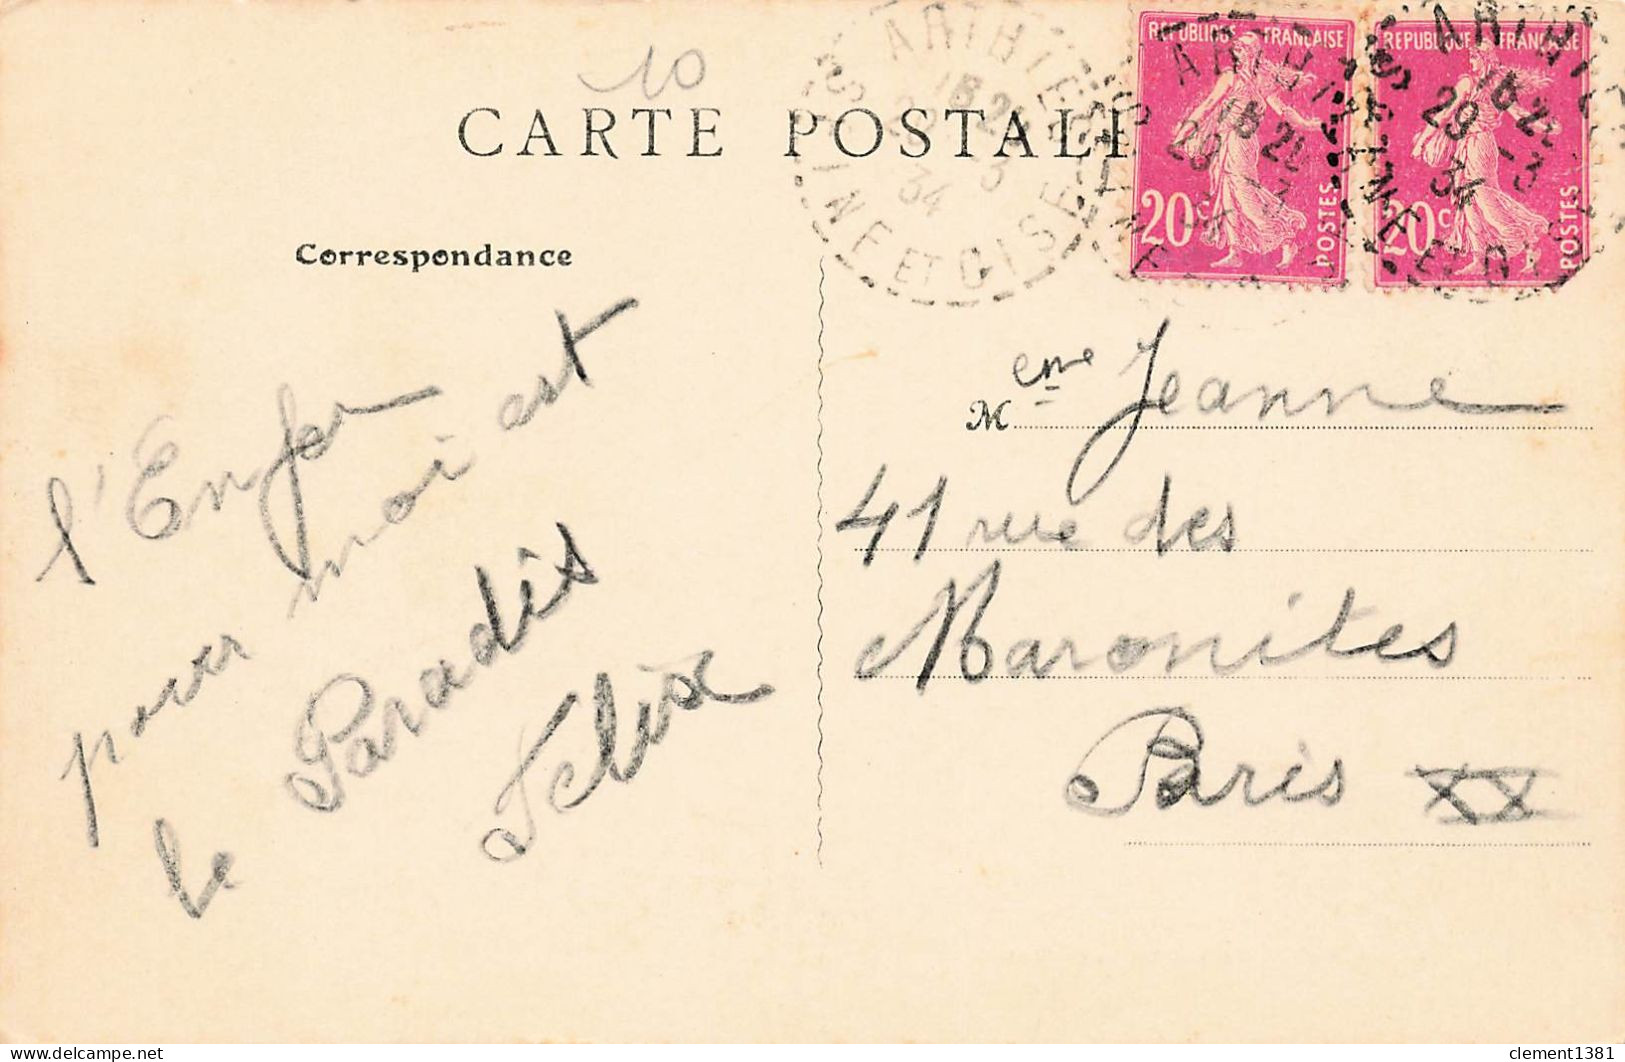 10
CARTE POSTALE
REPUBLIQUE FRANÇAISE
20c
POSTES
REPUBLIQUE FRANÇAISE
20c
POSTES
ARTHIES
18 20
29 -3
34
SEINE ET OISE
Correspondance
l'Enfer
pour moi est
le Paradis
Félix
Mme Jeanne
41 rue des
Maronites
Paris XX
clement1381